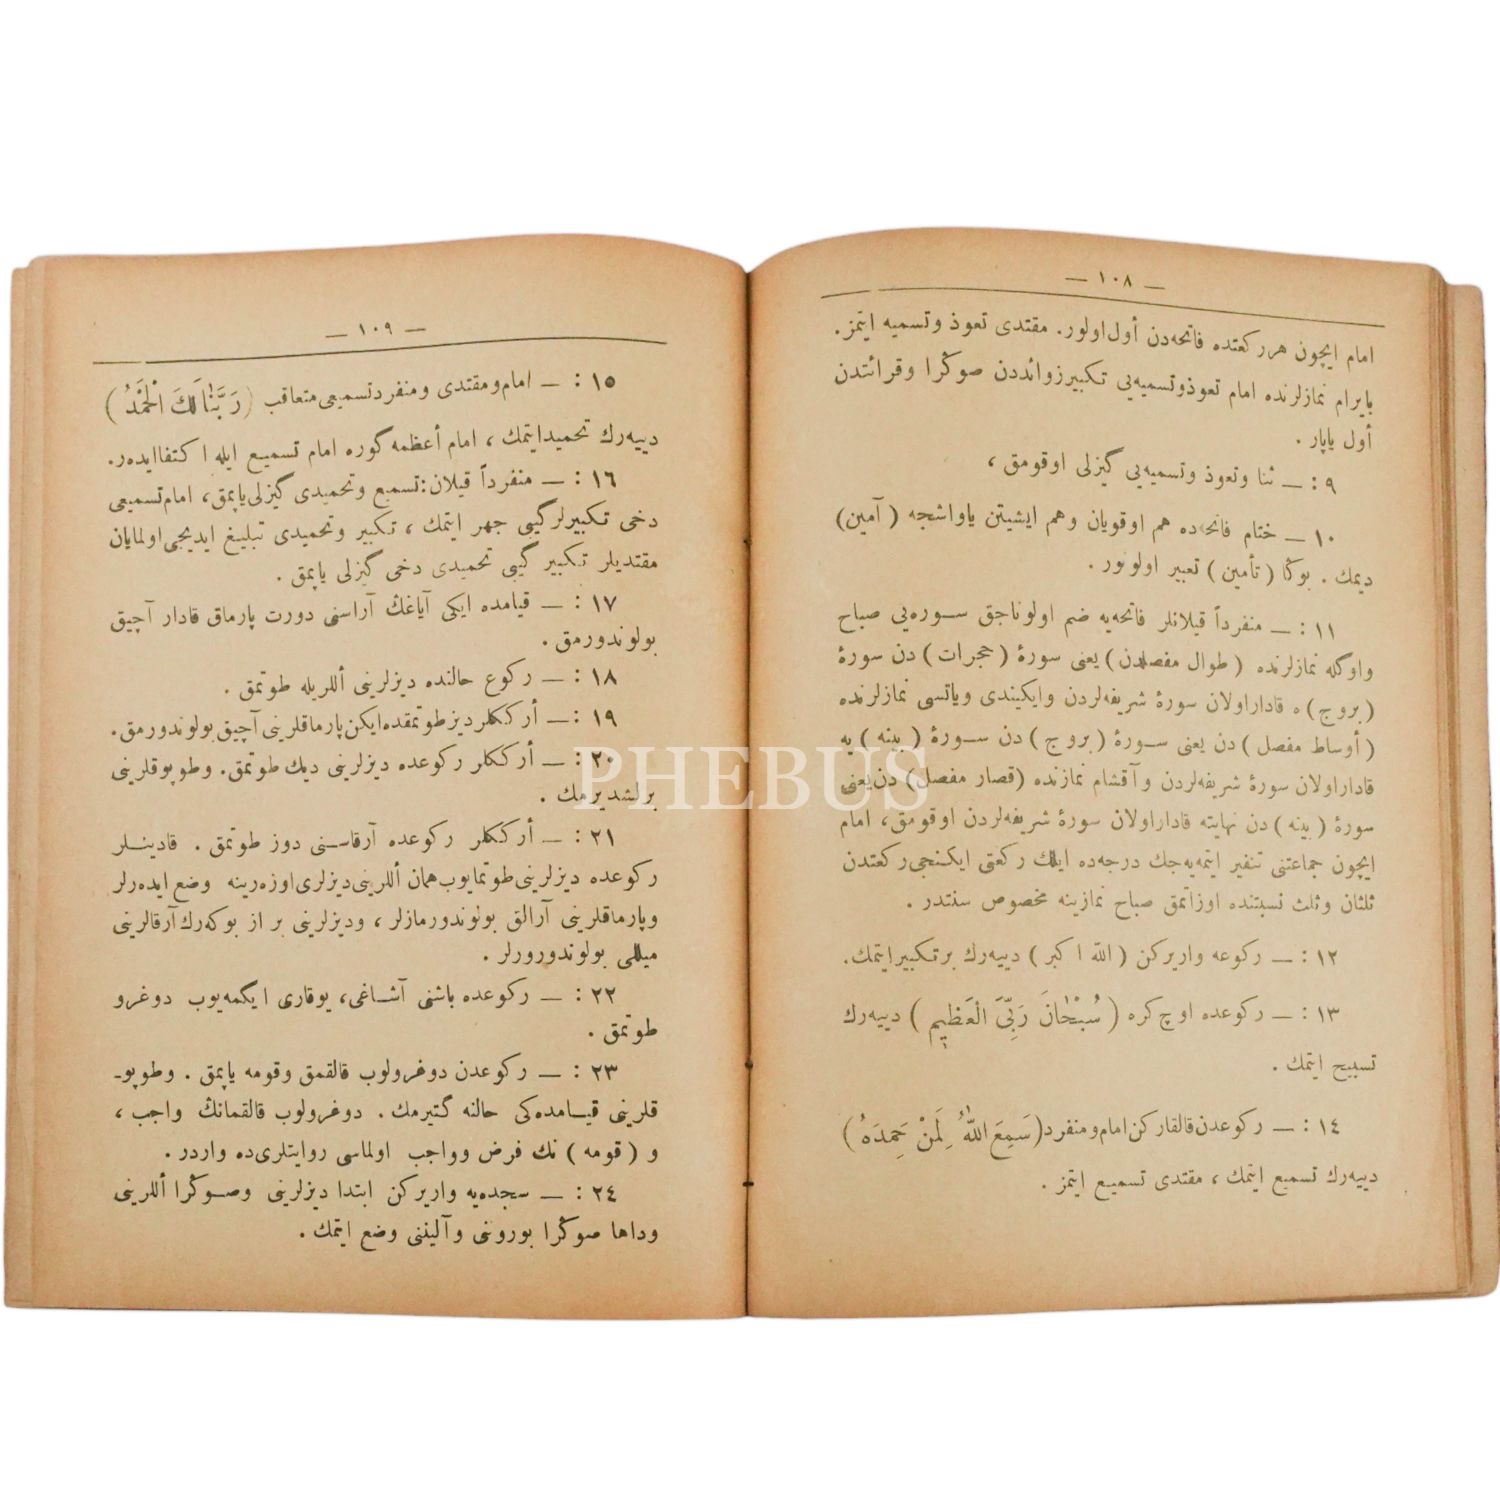 — ١٠٨ —
امام ايچون هرركعتده فاتحه‌دن أول‌اولور. مقتدى تعوذ وتسميه ايتمز.
بايرام نمازلرنده امام تعوذوتسميه‌يى تكبيرزوائددن صوڭرا وقرائتدن
أول ياپار .
٩ : — ثنا وتعوذ وتسميه‌يى گيزلى اوقومق ،
١٠ — ختام فاتحه‌ده هم اوقويان وهم ايشيتن ياواشجه (آمين)
ديمك . بوڭا (تأمين) تعبير اولونور .
١١ : — منفرداً قيلانلر فاتحه‌يه ضم اولوناجق سوره‌يى صباح
واوگله نمازلرنده (طوال مفصلدن) يعنى سورۀ (حجرات) دن سورۀ
(بروج) ه قاداراولان سورۀ شريفه‌لردن وايكيندى وياتسى نمازلرنده
(أوساط مفصل) دن يعنى سورۀ (بروج) دن سورۀ (بينه) يه
قاداراولان سورۀ شريفه‌لردن وآقشام نمازنده (قصار مفصل) دن‌يعنى
سورۀ (بينه) دن نهايته قاداراولان سورۀ شريفه‌لردن اوقومق، امام
ايچون جماعتنى تنفير ايتمه‌يه‌جك درجه‌ده ايلك ركعتى ايكنجى‌ركعتدن
ثلثان وثلث نسبتنده اوزاتمق صباح نمازينه مخصوص سنتدر .
١٢ : — ركوعه واريركن (الله اكبر) دييه‌رك برتكبيرايتمك.
١٣ : — ركوعده اوچ‌كره (سُبْحَانَ رَبِّىَ الْعَظِيمِ) دييه‌رك
تسبيح ايتمك .
١٤ : — ركوعدن‌قالقاركن‌امام‌ومنفرد(سَمِعَ اللّٰهُ لِمَنْ حَمِدَهُ)
دييه‌رك تسميع ايتمك ، مقتدى تسميع ايتمز .
— ١٠٩ —
١٥ : — امام‌ومقتدى ومنفردتسميعى‌متعاقب (رَبَّنَا لَكَ الْحَمْدُ)
دييه‌رك تحميدايتمك ، امام أعظمه گوره امام تسميع ايله اكتفاايده‌ر.
١٦ : — منفرداً قيلان: تسمع وتحميدى گيزلى‌ياپمق، امام‌تسميعى
دخى تكبيرلرگيبى جهر ايتمك ، تكبير وتحميدى تبليغ ايديجى‌اولمايان
مقتديلر تكبير گيبى تحميدى دخى گيزلى ياپمق .
١٧ : — قيامده ايكى آياغڭ آراسنى دورت پارماق قادار آچيق
بولوندورمق .
١٨ : — ركوع حالنده ديزلرينى أللريله طوتمق .
١٩ : — أركلكلر ديزطوتمقده‌ايكن‌پارماقلرينى‌آچيق‌بولوندورمق.
٢٠ : — أرككلر ركوعده ديزلرينى ديك طوتمق. وطوپوقلرينى
برلشديرمك .
٢١ : — أرككلر ركوعده آرقاسنى دوز طوتمق . قادينلر
ركوعده ديزلرينى‌طوتمايوب‌همان أللرينى‌ديزلرى‌اوزه‌رينه وضع ايده‌رلر
وپارماقلرينى آرالق بولوندورمازلر ، وديزلرينى بر از بوكه‌رك‌آرقالرينى
ميللى بولوندورورلر .
٢٢ : — ركوعده باشنى آشاغى، يوقارى ايگمه‌يوب دوغرو
طوتمق .
٢٣ : — ركوعدن دوغرولوب قالقمق وقومه ياپمق . وطوپو-
قلرينى قيامده‌كى حالنه گتيرمك . دوغرولوب قالقمانڭ واجب ،
و (قومه) نك فرض وواجب اولماسى روايتلرى‌ده واردر .
٢٤ : — سجده‌يه واريركن ابتدا ديزلرينى وصوڭرا أللرينى
وداها صوڭرا بورونى وآليننى وضع ايتمك .
PHEBUS